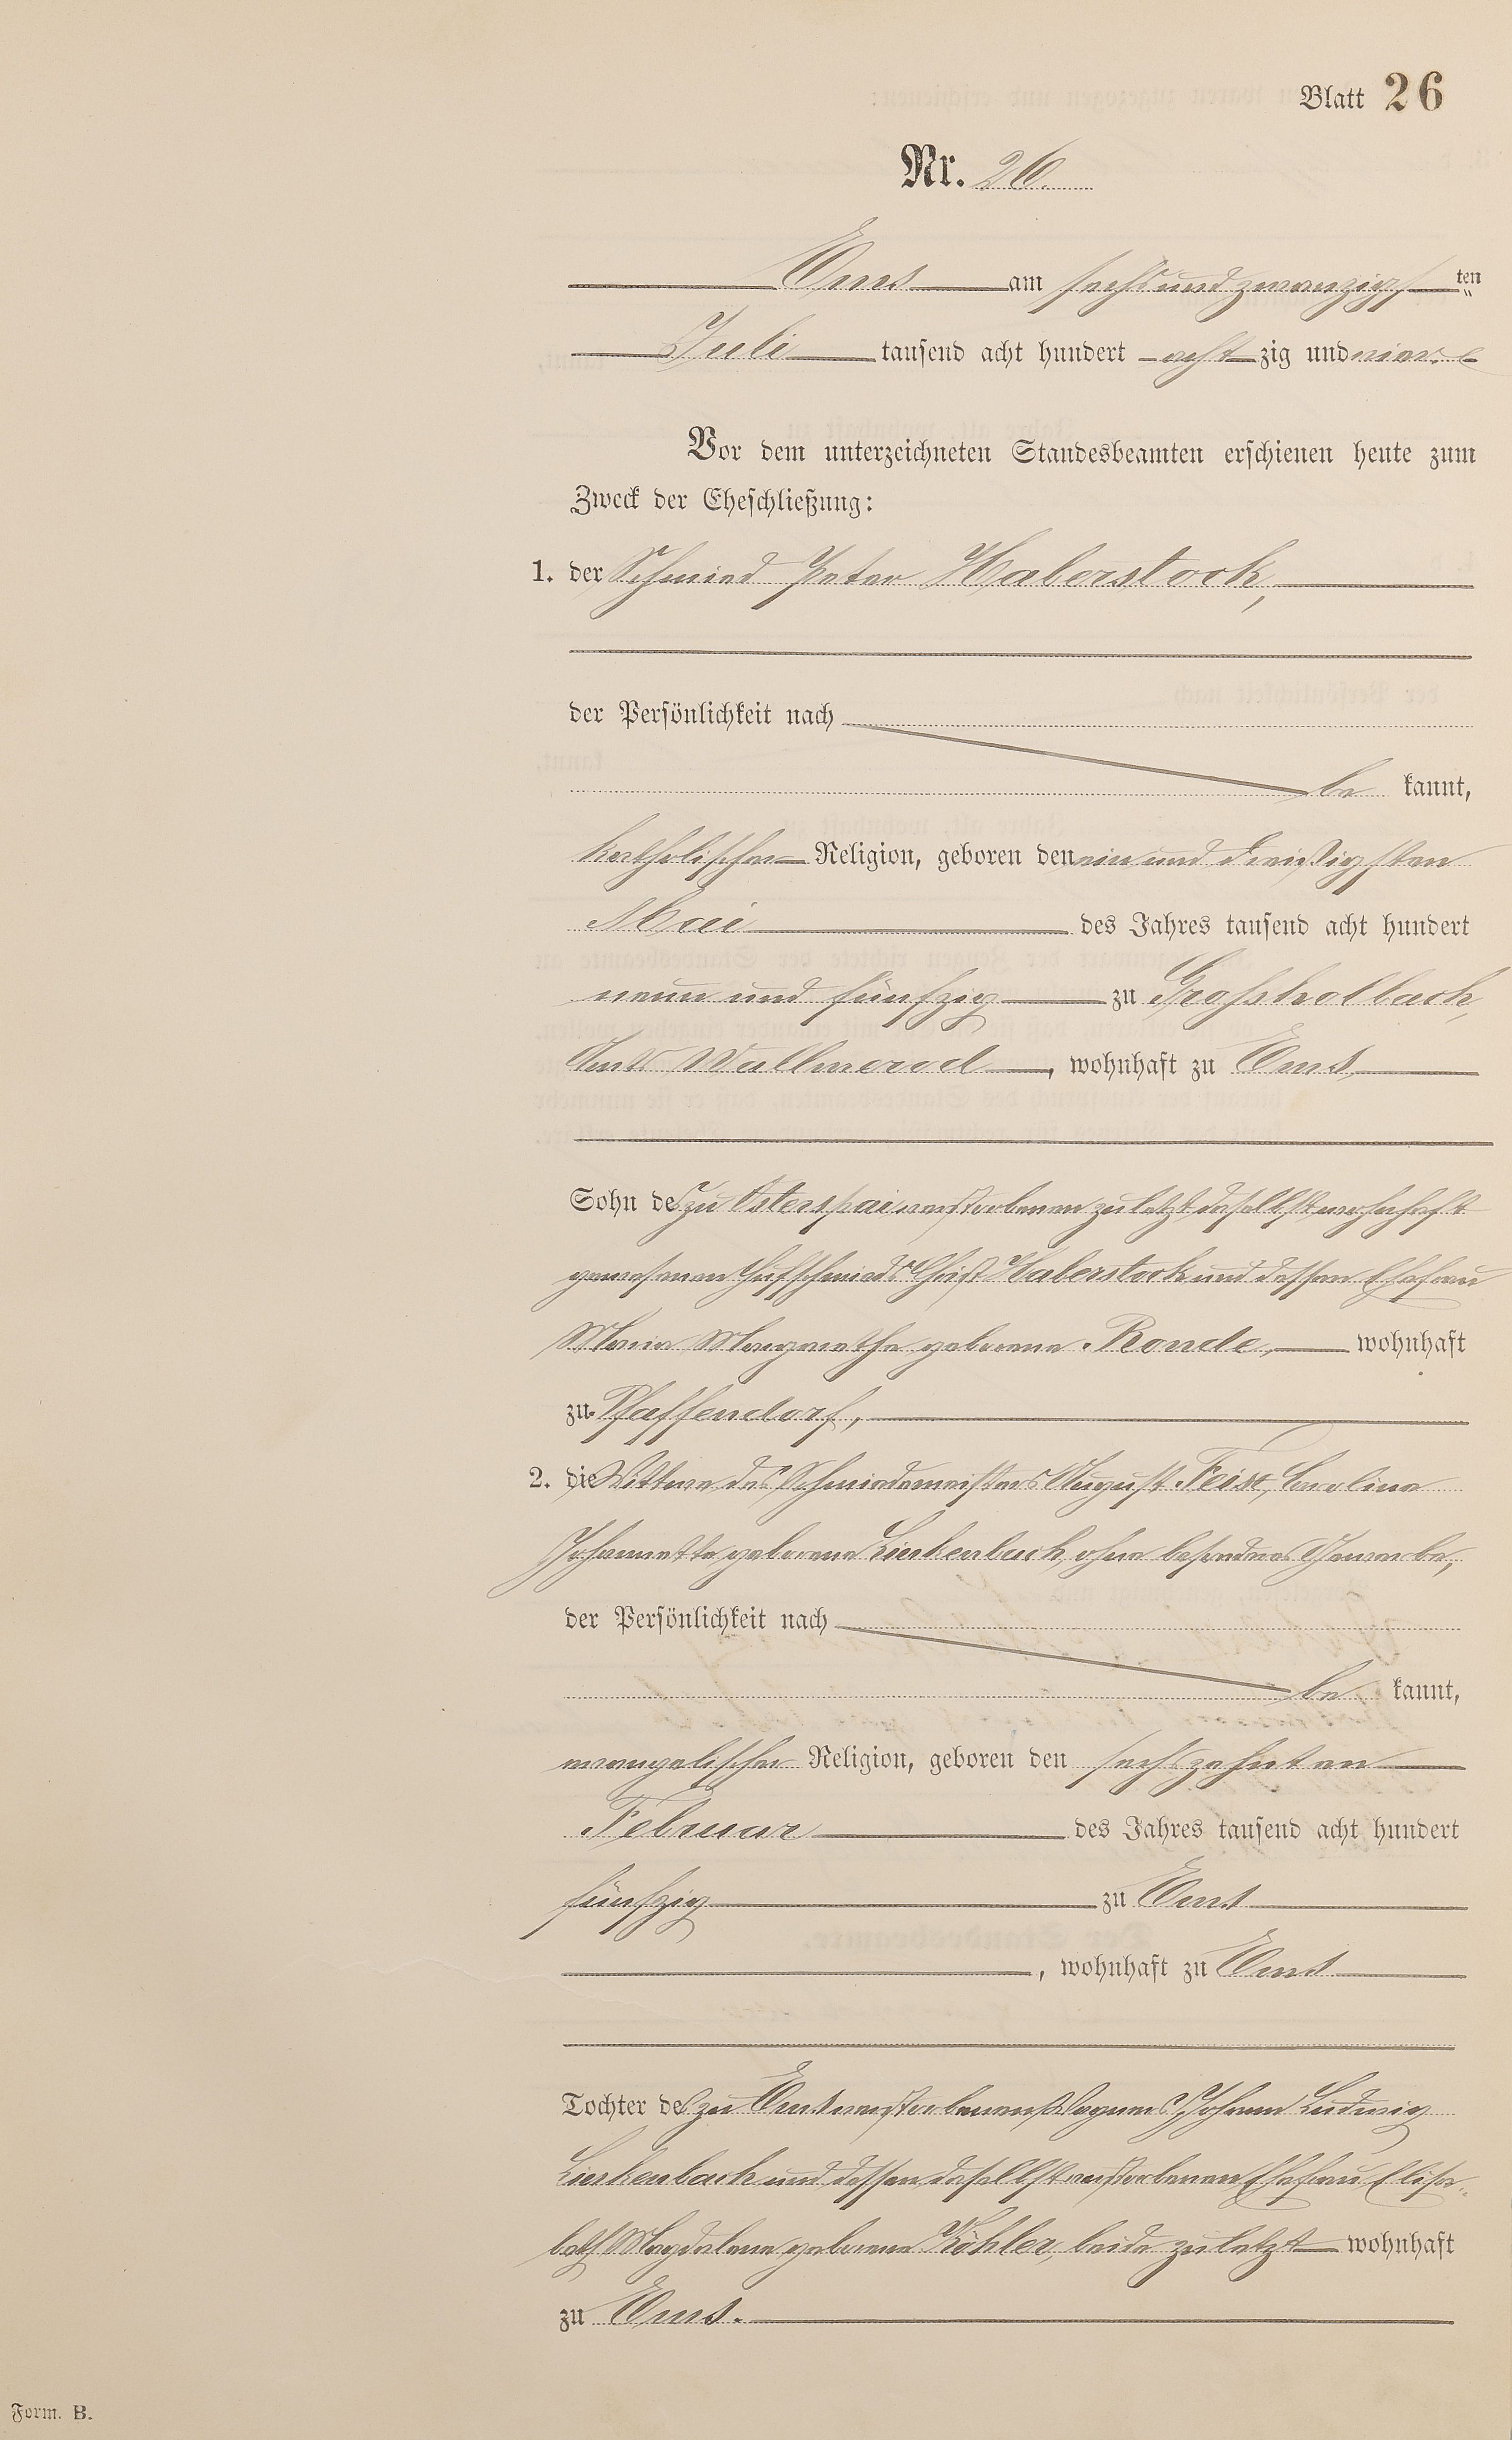 Blatt 26
Nr. 26.
Ems am sechs und zwanzigsten
Juli tausend acht hundert acht zig und vier
Vor dem unterzeichneten Standesbeamten erschienen heute zum
Zweck der Eheschließung:
1. der Schmied Peter Haberstock,
der Persönlichkeit nach
be kannt,
katholischer Religion, geboren den ein und dreißigsten
Mai des Jahres tausend acht hundert
neun und fünfzig zu Grossholbach,
Amts Wallmerod, wohnhaft zu Ems
Sohn des zu Osterspai verstorbenen zuletzt daselbst wohnhaft
gewesenen Hufschmieds Christ Haberstock und dessen Ehefrau
Maria Margarethe geborene Ronde, wohnhaft
zu Pfaffendorf,
2. die Wittwe des Schmiedemeisters August Feist, Caroline
Johannette geborene Linkenbach, ohne besonderes Gewerbe,
der Persönlichkeit nach
be kannt,
evangelischer Religion, geboren den sechszehnten
Februar des Jahres tausend acht hundert
fünfzig zu Ems
, wohnhaft zu Ems
Tochter des zu Ems verstorbenen Wagners Johann Ludwig
Linkenbach und dessen daselbst verstorbenen Ehefrau Elisa-
beth Magdalene geborene Köhler, beide zuletzt wohnhaft
zu Ems.
Form. B.